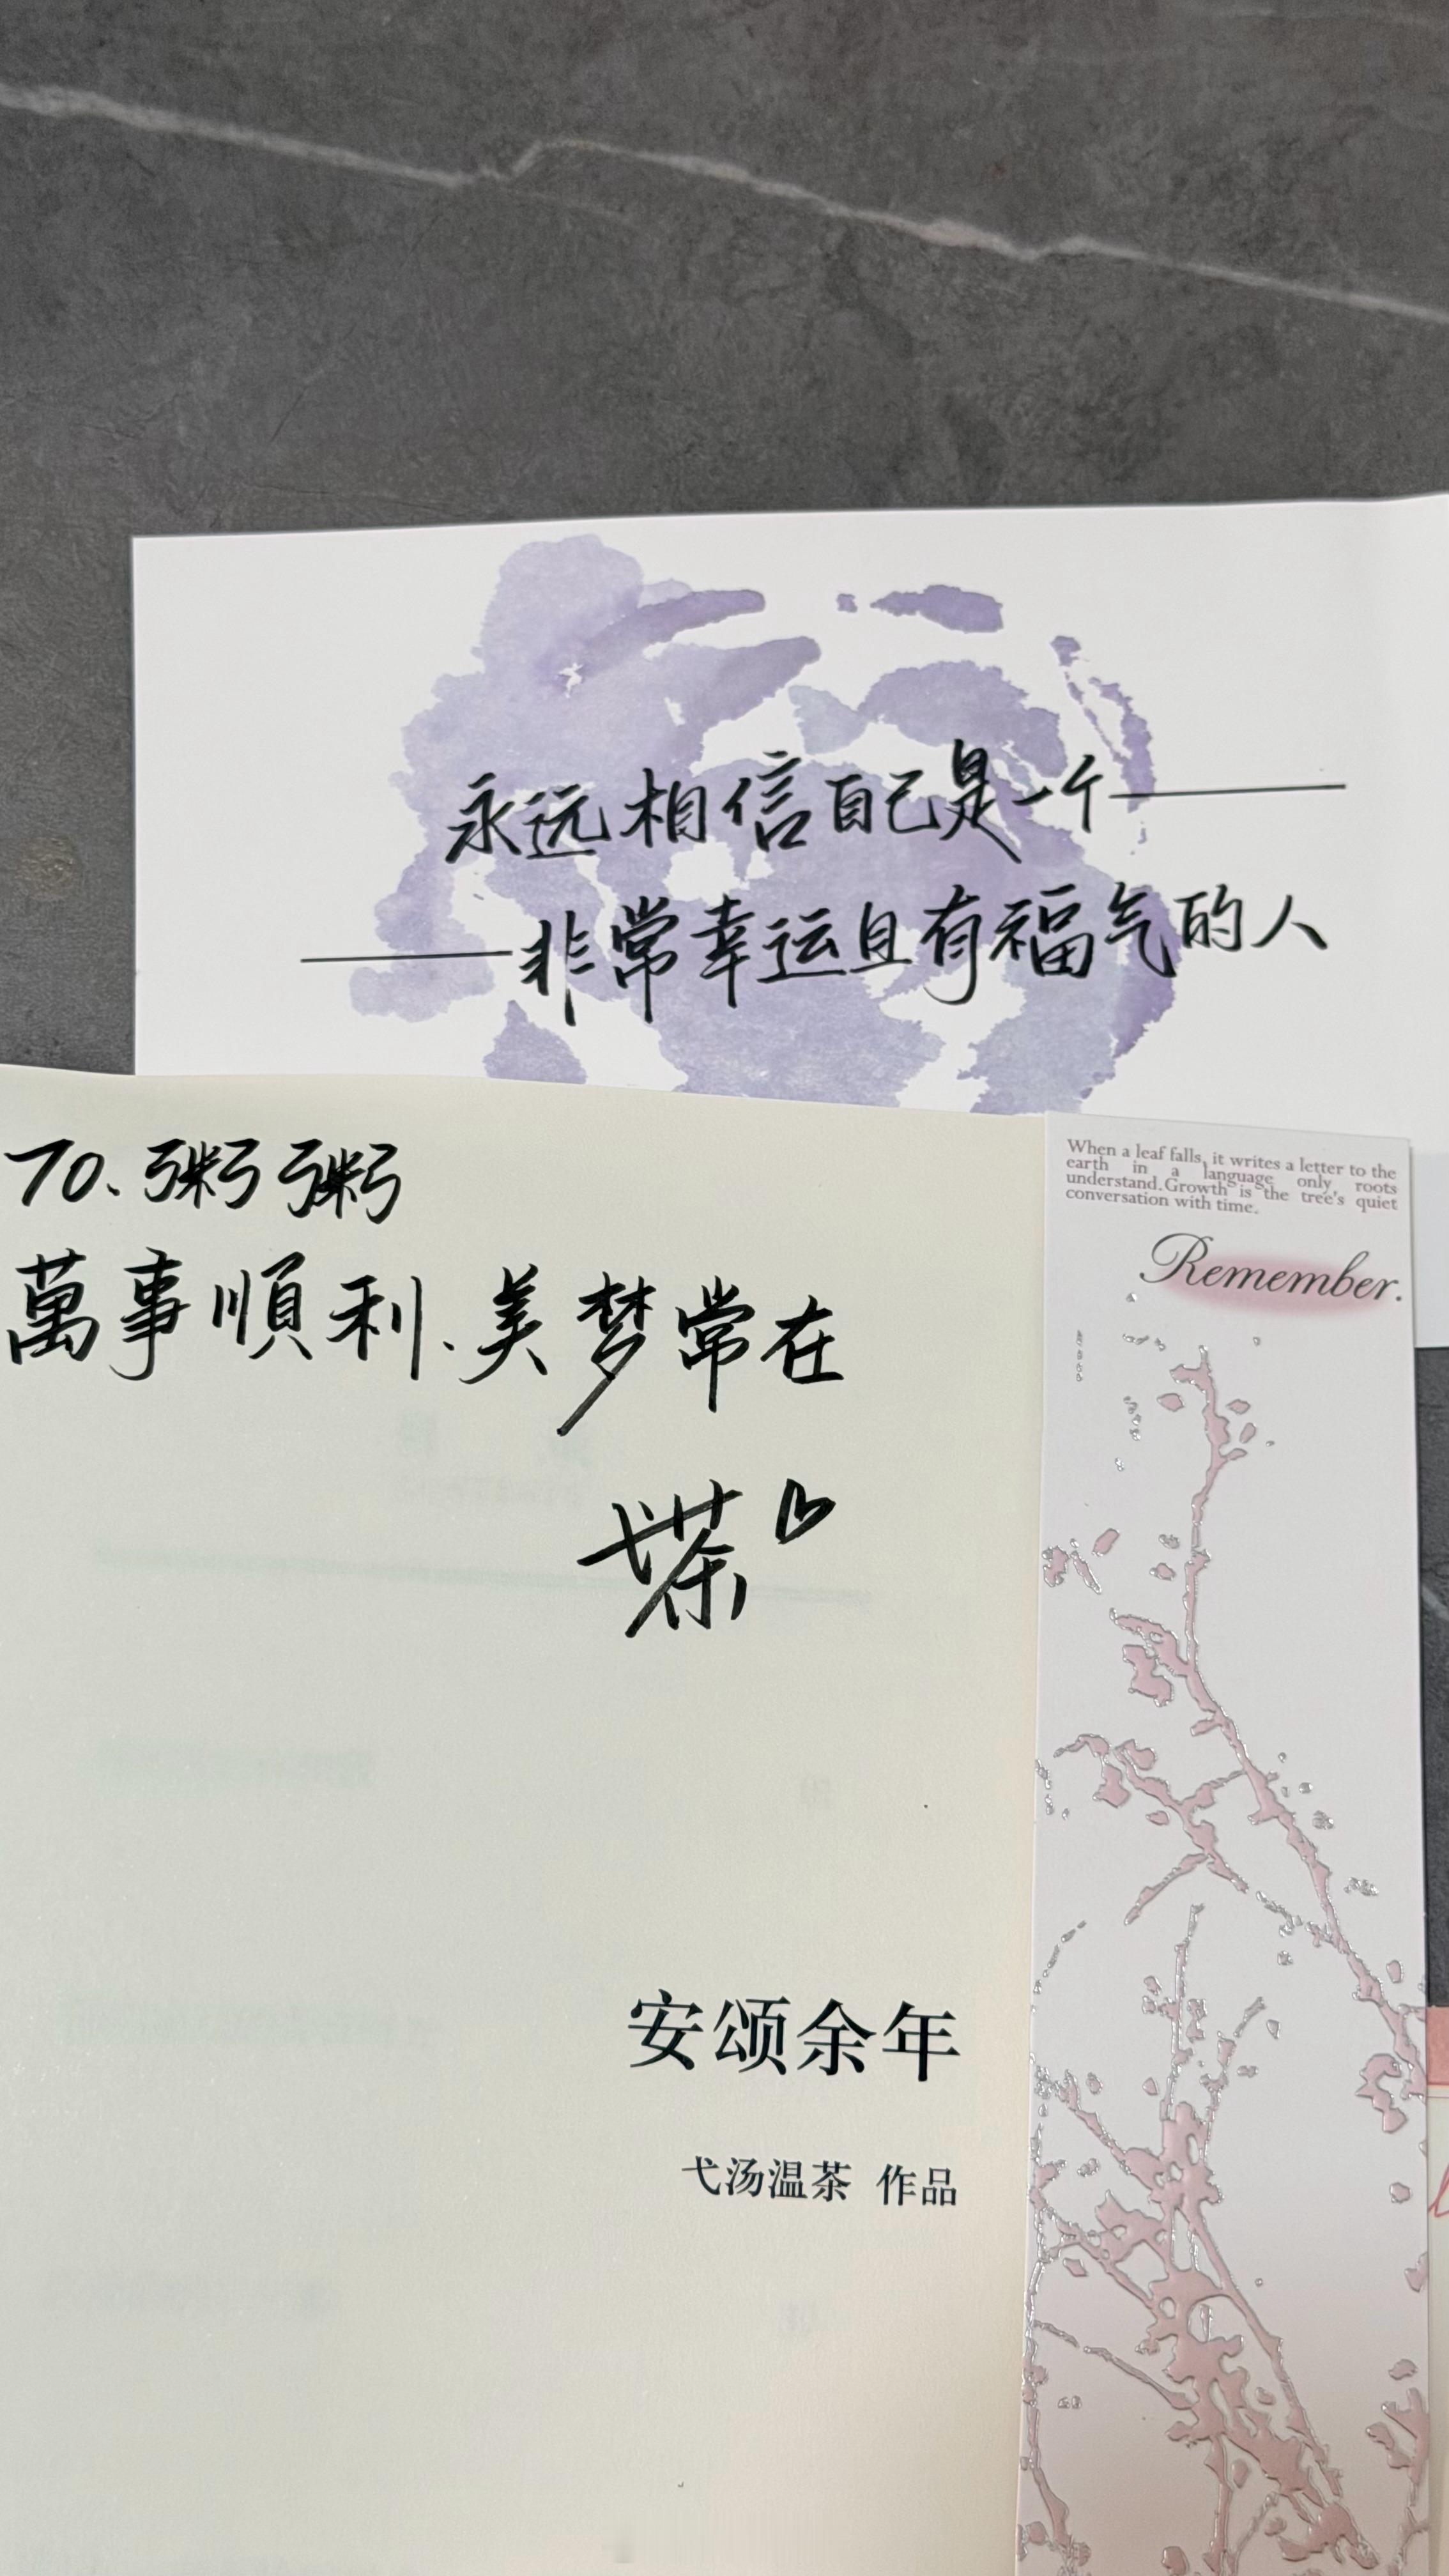 永远相信自己是一个——
——非常幸运且有福气的人
TO.粥粥
萬事順利、美梦常在
弋茶
安颂余年
弋汤温茶 作品
When a leaf falls, it writes a letter to the
earth in a language only roots
understand. Growth is the tree's quiet
conversation with time.
Remember.